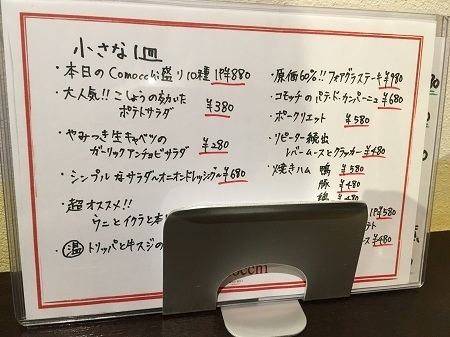 小さな1皿
・本日のComocchi盛り10種 1P¥880
・大人気!! こしょうの効いた
ポテトサラダ ¥380
・やみつき生キャベツの
ガーリックアンチョビサラダ ¥280
・シンプルなサラダ〜オニオンドレッシング ¥680
・超オススメ!!
ウニとイクラと
・温 トリッパと牛スジの
・原価60%!! フォアグラステーキ ¥980
・コモッチのパテ・ド・カンパーニュ ¥680
・ポークリエット ¥580
・リピーター続出
レバームースとクラッカー ¥480
・焼きハム 鴨 ¥580
豚 ¥480
1P¥580
¥480